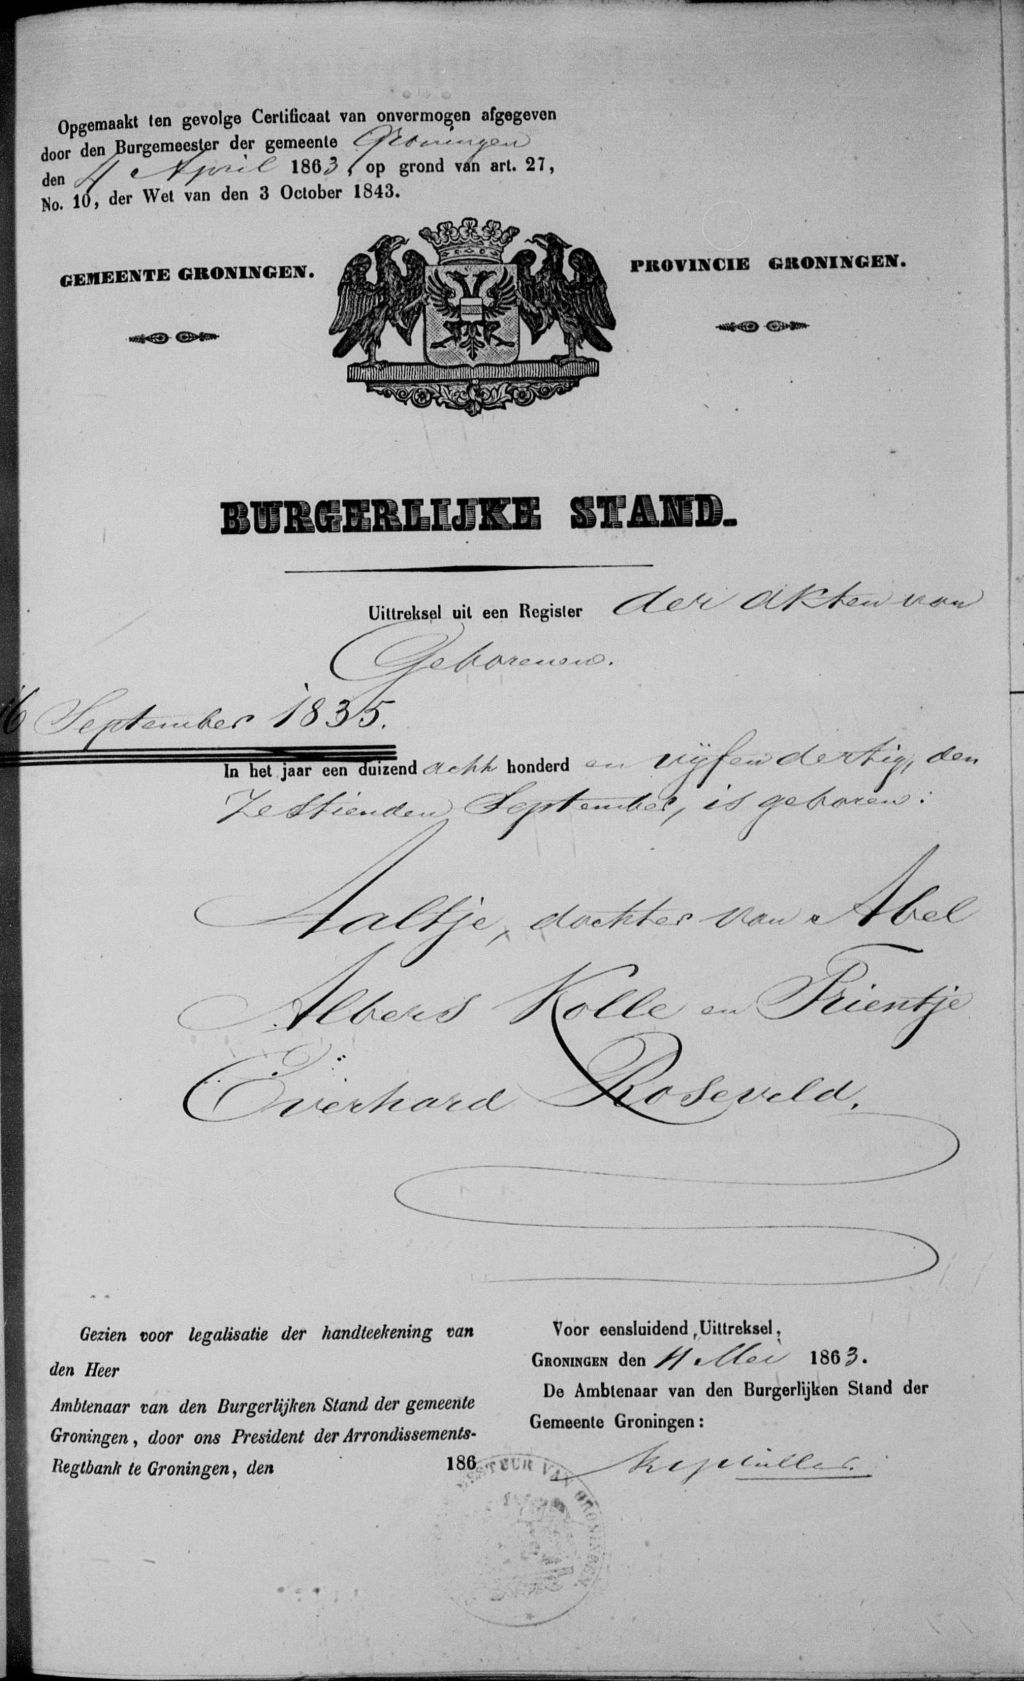 Opgemaakt ten gevolge Certificaat van onvermogen afgegeven
door den Burgemeester der gemeente Groningen
den 4 April 1863, op grond van art. 27,
No. 10, der Wet van den 3 October 1843.
GEMEENTE GRONINGEN.
PROVINCIE GRONINGEN.
BURGERLIJKE STAND.
Uittreksel uit een Register der akten van
Geborenen.
16 September 1835.
In het jaar een duizend acht honderd en vijfendertig, den
Zestienden September, is geboren:
Aaltje, dochter van Abel
Albers Kolle en Trientje
Everhard Roseveld.
Gezien voor legalisatie der handteekening van
den Heer
Ambtenaar van den Burgerlijken Stand der gemeente
Groningen, door ons President der Arrondissements-
Regtbank te Groningen, den 186
Voor eensluidend Uittreksel,
GRONINGEN den 4 Mei 1863.
De Ambtenaar van den Burgerlijken Stand der
Gemeente Groningen:
BESTUUR VAN GRONINGEN